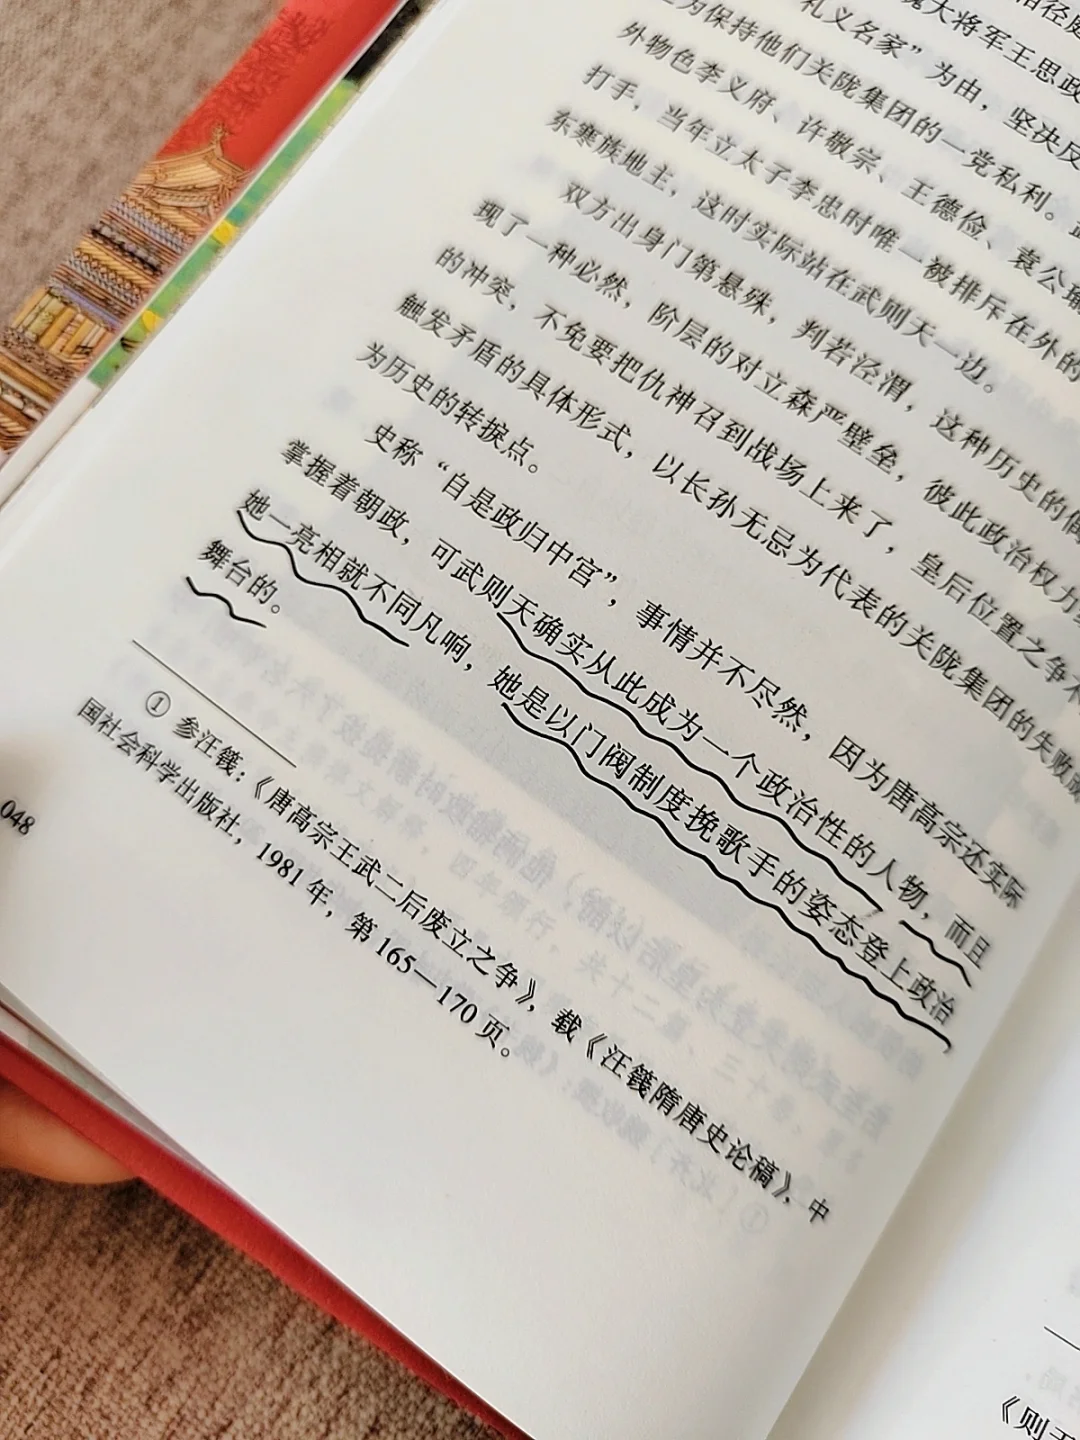 相径庭
魏大将军王思政
礼义名家”为由，坚决反
为保持他们关陇集团的一党私利。
外物色李义府、许敬宗、王德俭、袁公瑜
打手，当年立太子李忠时唯一被排斥在外的
东寒族地主，这时实际站在武则天一边。
双方出身门第悬殊，判若泾渭，这种历史的偶
现了一种必然，阶层的对立森严壁垒，彼此政治权力
的冲突，不免要把仇神召到战场上来了，皇后位置之争
触发矛盾的具体形式，以长孙无忌为代表的关陇集团的失败
为历史的转捩点。
史称“自是政归中宫”，事情并不尽然，因为唐高宗还实际
掌握着朝政，可武则天确实从此成为一个政治性的人物，而且
她一亮相就不同凡响，她是以门阀制度挽歌手的姿态登上政治
舞台的。
① 参汪篯：《唐高宗王武二后废立之争》，载《汪篯隋唐史论稿》，中
国社会科学出版社，1981年，第165—170页。
048
《则天